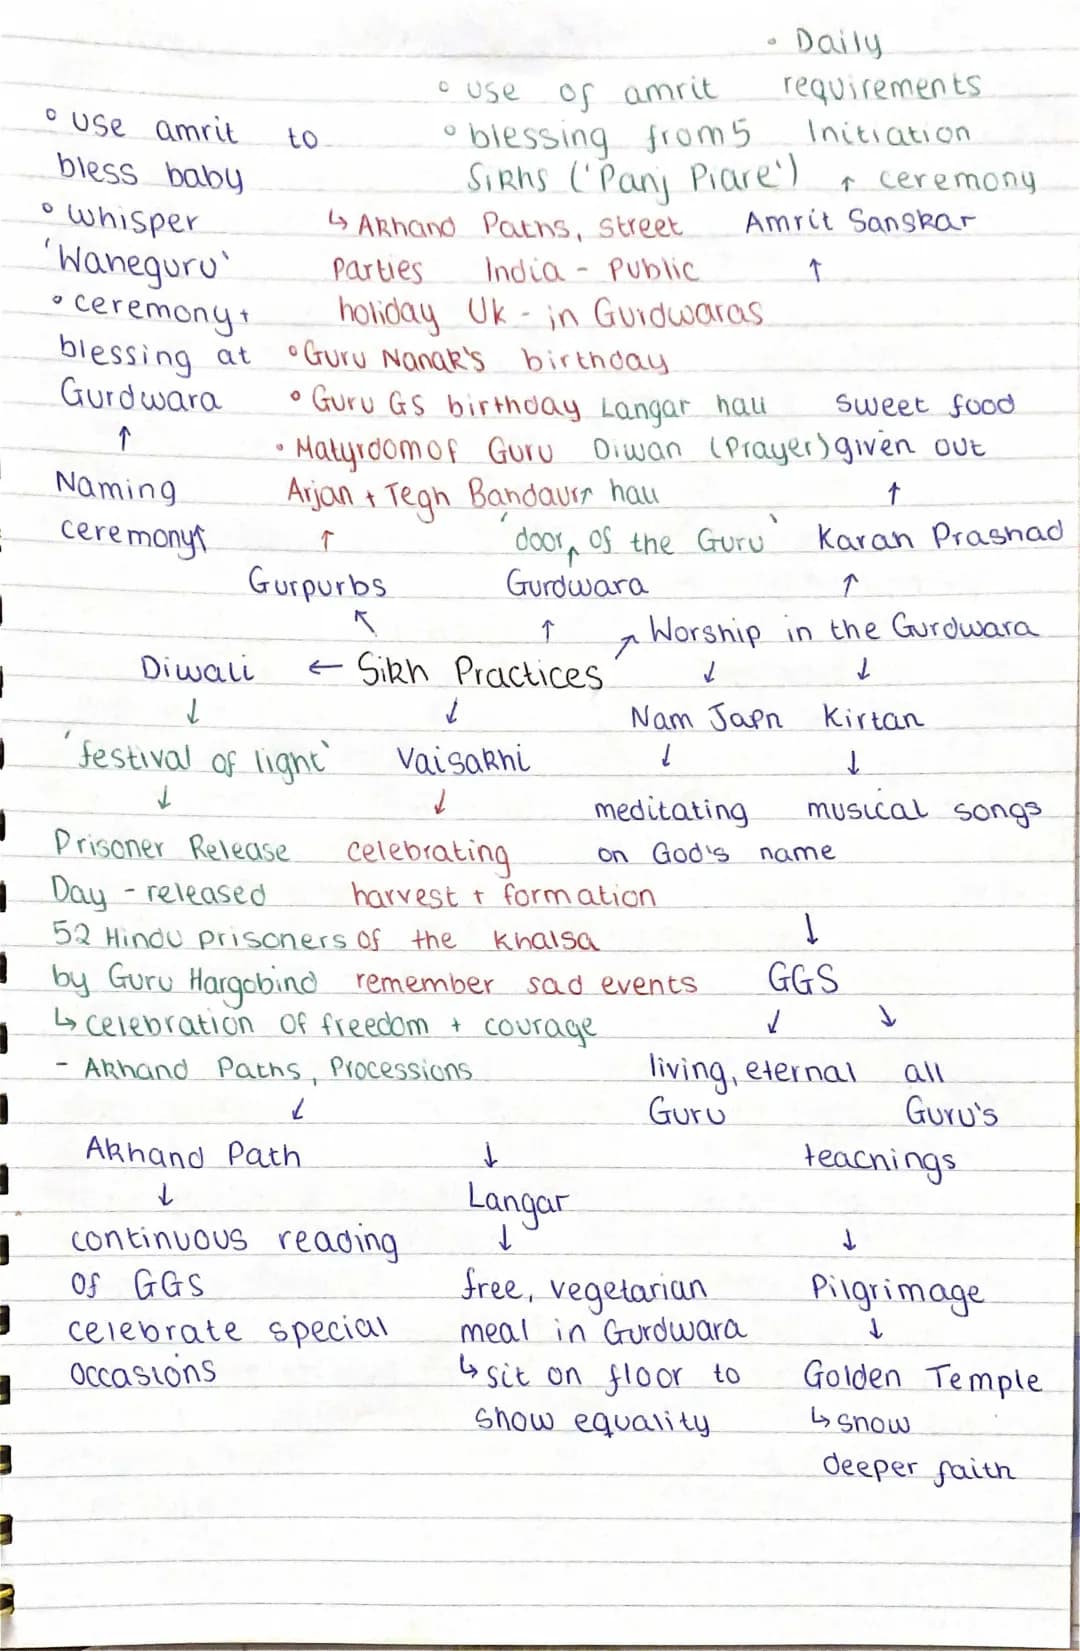 • Daily
• use of amrit requirements
• use amrit to • blessing from 5 Initiation
bless baby Sikhs ('Panj Piare') ↑ ceremony
• whisper ↳ Akhand Paths, street Amrit Sanskar
'Waheguru' Parties India - Public ↑
• ceremony + holiday Uk - in Gurdwaras
blessing at • Guru Nanak's birthday
Gurdwara • Guru GS birthday Langar hall sweet food
↑ • Matyrdom of Guru Diwan (Prayer) given out
Naming Arjan + Tegh Bandaurr hall ↑
ceremony↑ ↑ 'door of the Guru' Karah Prashad
Gurpurbs Gurdwara ↑
↖ ↑ ↗ Worship in the Gurdwara
Diwali ← Sikh Practices ↓ ↓
↓ ↓ Nam Japn Kirtan
'festival of light' Vaisakhi ↓ ↓
↓ ↓ meditating musical songs
Prisoner Release celebrating on God's name
Day - released harvest + formation
52 Hindu prisoners of the Khalsa ↓
by Guru Hargobind remember sad events GGS
↳ celebration of freedom + courage ↓ ↘
- Akhand Paths, Processions living, eternal all
↓ Guru Guru's
Akhand Path ↓ teachings
↓ Langar
continuous reading ↓ ↓
of GGS free, vegetarian Pilgrimage
celebrate special meal in Gurdwara ↓
occasions ↳ sit on floor to Golden Temple
show equality ↳ show
deeper faith